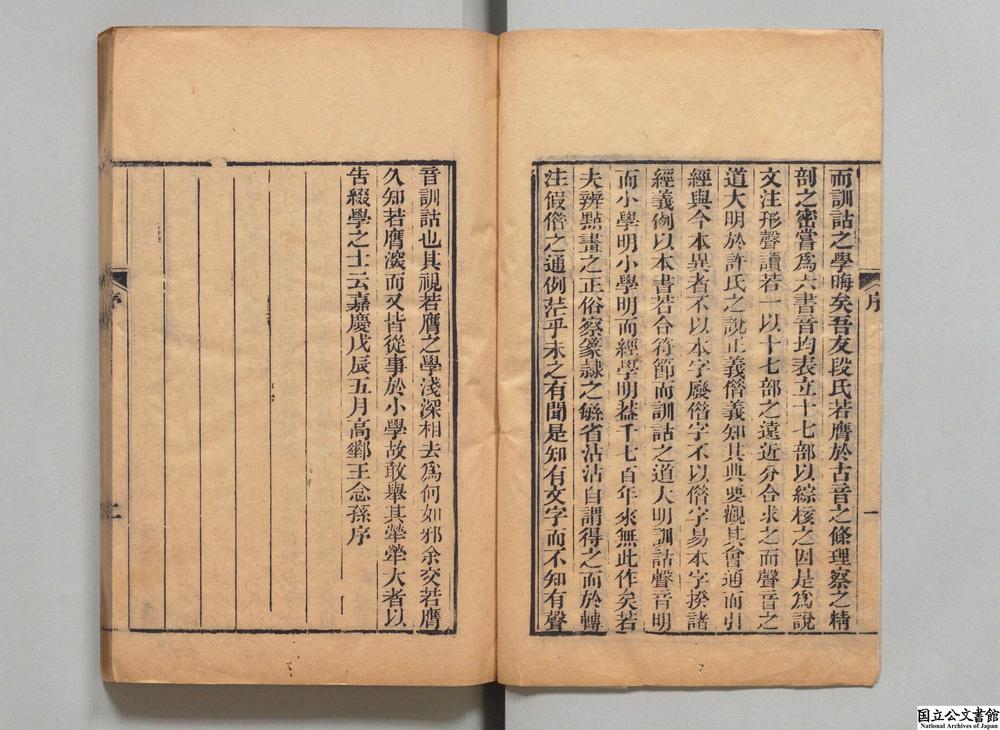 而訓詁之學晦矣吾友段氏若膺於古音之條理察之精
剖之密嘗爲六書音均表立十七部以綜核之因是爲說
文注形聲讀若一以十七部之遠近分合求之而聲音之
道大明於許氏之說正義借義知其典要觀其會通而引
經與今本異者不以本字廢借字不以借字易本字揆諸
經義例以本書若合符節而訓詁之道大明訓詁聲音明
而小學明小學明而經學明葢千七百年來無此作矣若
夫辨點畫之正俗察篆隷之緐省沾沾自謂得之而於轉
注假借之通例茫乎未之有聞是知有文字而不知有聲
序
一
音訓詁也其視若膺之學淺深相去爲何如邪余交若膺
久知若膺㴱而又皆從事於小學故敢舉其犖犖大者以
告綴學之士云嘉慶戊辰五月高郵王念孫序
序
二
国立公文書館
National Archives of Japan